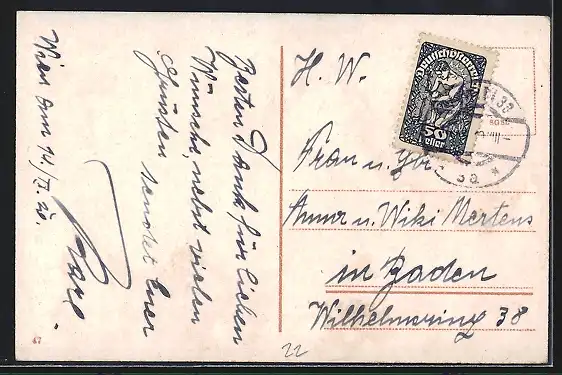 Wien am 14./II. 20.
Besten Dank für lieben
Wünsche, nebst vielen
Grüssen sendet Euer
Karl.
H. W.
Frau u.
Anna u. Wiki Mertens
in Baden
Wilhelmsring 38
Deutschösterreich
50
Heller
3a *
47
22